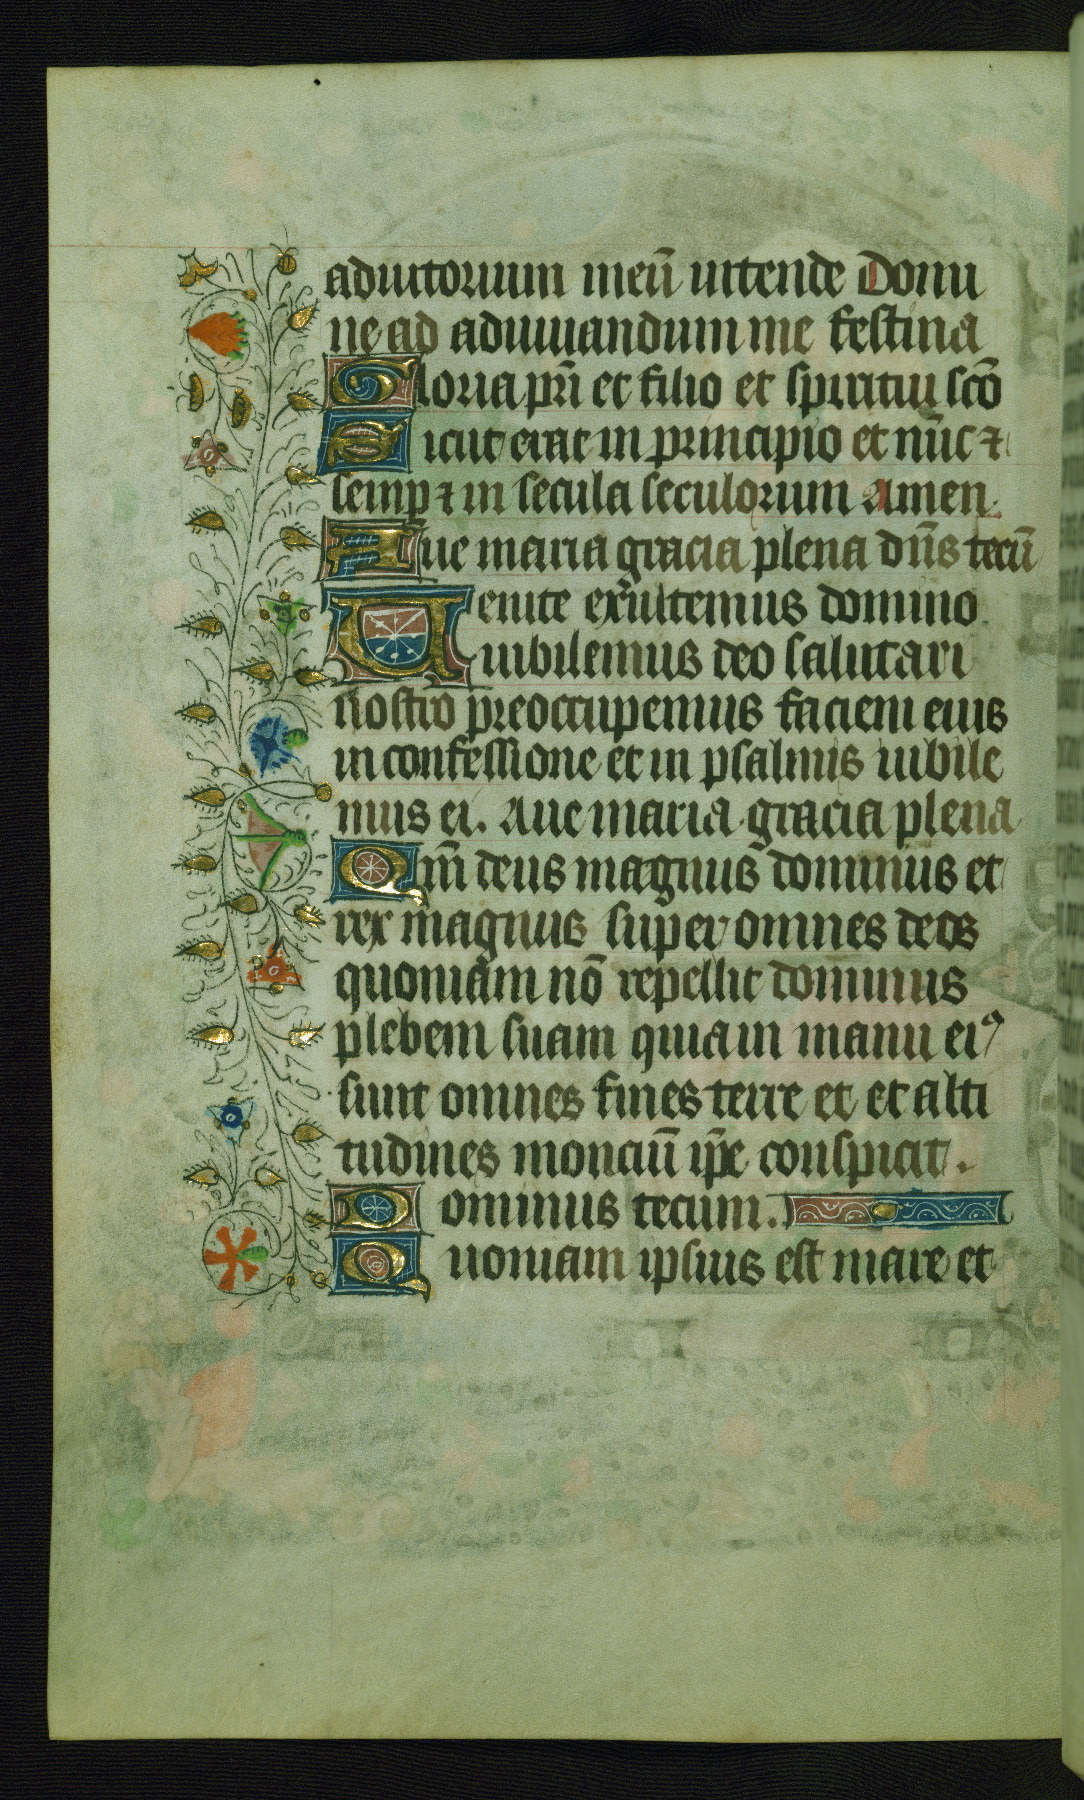 adiutorium meū intende Domi
ne ad adiuuandum me festina
Gloria pr̄i et filio et spiritui scō
Sicut erat in principio et nūc ⁊
semp̲ ⁊ in secula seculorum Amen.
Aue maria gracia plena dn̄s tecū
Uenite exultemus domino
iubilemus deo salutari
nostro preoccupemus faciem eius
in confessione et in psalmis iubile
mus ei. Aue maria gracia plena
Qm̄ deus magnus dominus et
rex magnus super omnes deos
quoniam nō repellit dominus
plebem suam quia in manu eiꝰ
sunt omnes fines terre et et alti
tudines monciū ip̄e conspicit.
Dominus tecum.
Quoniam ipsius est mare et